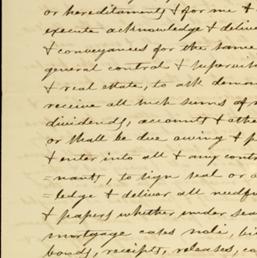 or hereditaments & for me &
execute acknowledge & deliver
& conveyances for the same
general control &
& real estate, to ask
receive all such sums of
dividends, accounts & othe
or shall be due owing & p
& enter into all & any contr
=nants, to sign seal or a
=ledge & deliver all needfu
& papers whether under sea
mortgage notes, bi
bonds, receipts, releases, ca